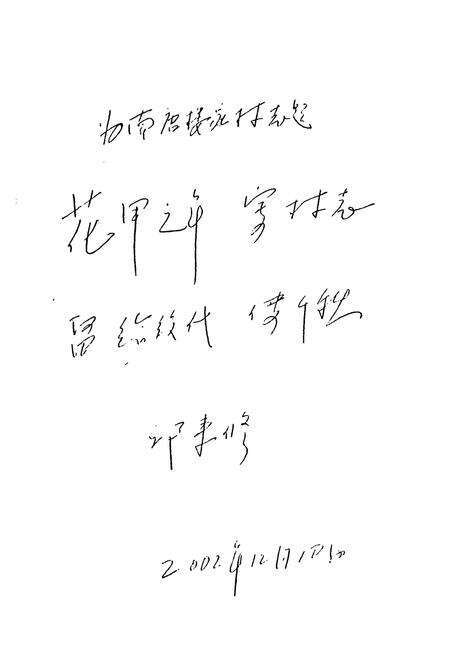 为南唐楼底村志题
花甲之年 写村志
留给后代 传千秋
邱来修
2002年12月1日